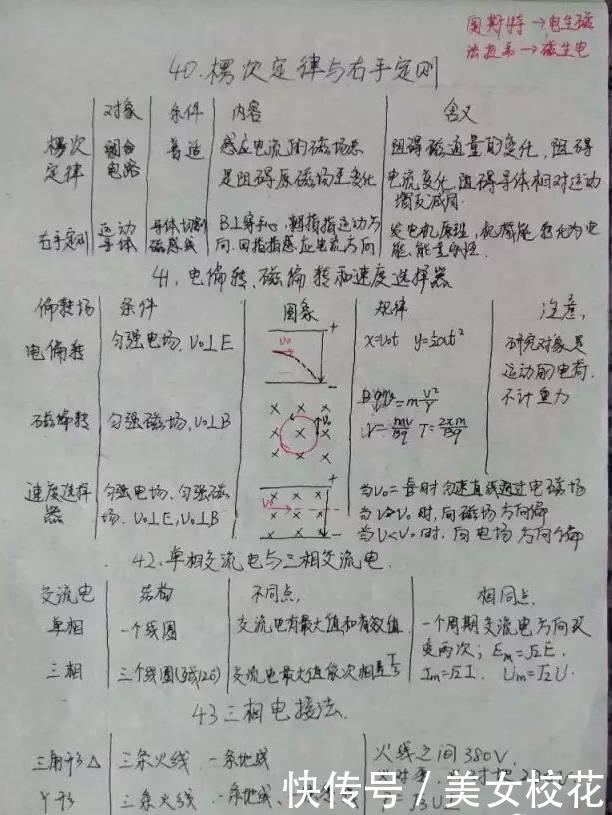 奥斯特→电生磁
法拉第→磁生电
40.楞次定律与右手定则
对象 条件 内容 含义
楞次定律 闭合电路 普适 感应电流的磁场总是阻碍原磁场的变化 阻碍磁通量的变化、阻碍电流变化、阻碍导体相对运动 增反减同
右手定则 运动导体 导体切割磁感线 B⊥穿手心,拇指指运动方向.四指指感应电流方向 发电机原理,机械能转化为电能.能量守恒.
41、电偏转、磁偏转和速度选择器
偏转场 条件 图象 规律 注意
电偏转 匀强电场、V₀⊥E V₀ + − x=V₀t y=½at² 研究对象是运动的电荷.不计重力
磁偏转 匀强磁场,V₀⊥B V₀ =mV²/r r=mv/Bq T=2πm/Bq
速度选择器 匀强电场、匀强磁场.V₀⊥E,V₀⊥B V₀ + −
当V₀= 时匀速直线通过电磁场
当V>V₀时,向磁场方向偏
当V<V₀时,向电场方向偏
42、单相交流电与三相交流电.
交流电 结构 不同点, 相同点.
单相 一个线圈 交流电有最大值和有效值. 一个周期交流电方向改变两次;Em=√2E.
三相 三个线圈(线120) 交流电最大值依次相差T/3 Im=√2I. Um=√2U.
43三相电接法.
三角形△ 三条火线 一条地线 火线之间380V.
Y形 三条火线 一条地线、
快传号/美女校花